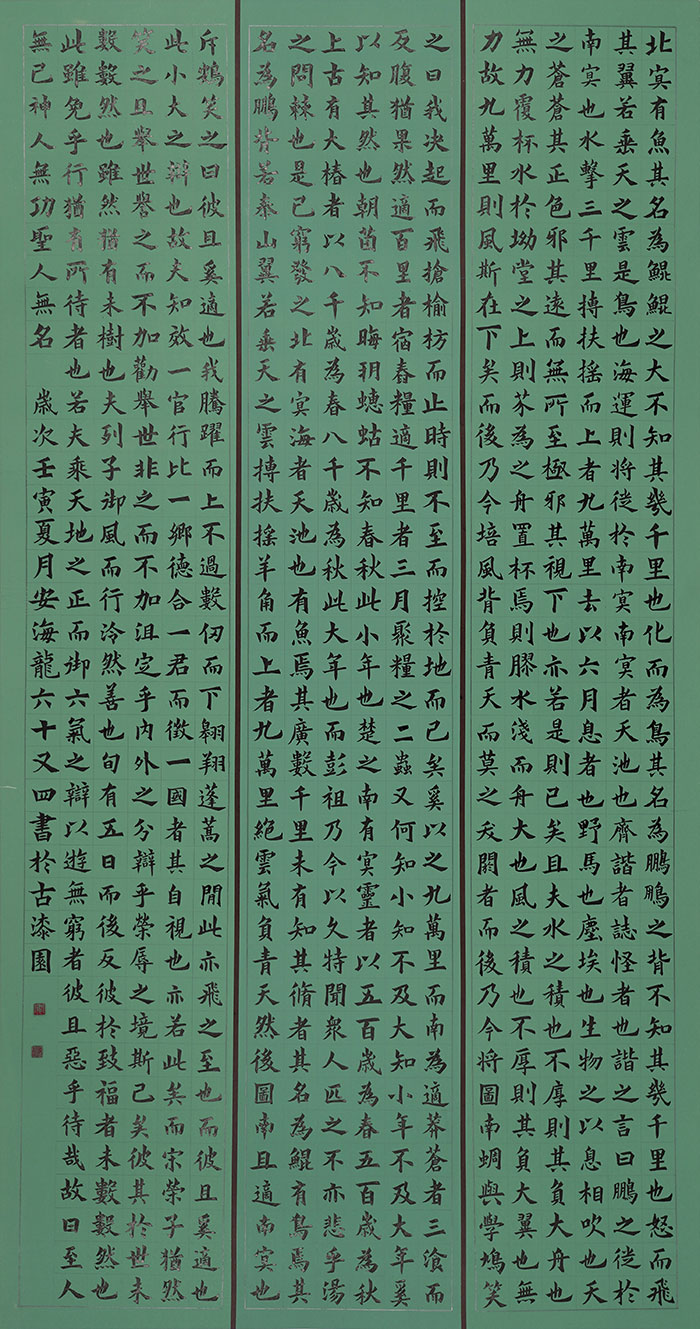 北冥有魚其名為鯤鯤之大不知其幾千里也化而為鳥其名為鵬鵬之背不知其幾千里也怒而飛
其翼若垂天之雲是鳥也海運則將徙於南冥南冥者天池也齊諧者誌怪者也諧之言曰鵬之徙於
南冥也水擊三千里摶扶搖而上者九萬里去以六月息者也野馬也塵埃也生物之以息相吹也天
之蒼蒼其正色邪其遠而無所至極邪其視下也亦若是則已矣且夫水之積也不厚則其負大舟也
無力覆杯水於坳堂之上則芥為之舟置杯焉則膠水淺而舟大也風之積也不厚則其負大翼也無
力故九萬里則風斯在下矣而後乃今培風背負青天而莫之夭閼者而後乃今將圖南蜩與學鳩笑
之曰我決起而飛搶榆枋而止時則不至而控於地而已矣奚以之九萬里而南為適莽蒼者三湌而
反腹猶果然適百里者宿舂糧適千里者三月聚糧之二蟲又何知小知不及大知小年不及大年奚
以知其然也朝菌不知晦朔蟪蛄不知春秋此小年也楚之南有冥靈者以五百歲為春五百歲為秋
上古有大椿者以八千歲為春八千歲為秋此大年也而彭祖乃今以久特聞衆人匹之不亦悲乎湯
之問棘也是已窮發之北有冥海者天池也有魚焉其廣數千里未有知其脩者其名為鯤有鳥焉其
名為鵬背若泰山翼若垂天之雲摶扶搖羊角而上者九萬里絕雲氣負青天然後圖南且適南冥也
斥鴳笑之曰彼且奚適也我騰躍而上不過數仞而下翱翔蓬蒿之間此亦飛之至也而彼且奚適也
此小大之辯也故夫知效一官行比一鄉德合一君而徵一國者其自視也亦若此矣而宋榮子猶然
笑之且舉世譽之而不加勸舉世非之而不加沮定乎內外之分辯乎榮辱之境斯已矣彼其於世未
數數然也雖然猶有未樹也夫列子御風而行泠然善也旬有五日而後反彼於致福者未數數然也
此雖免乎行猶有所待者也若夫乘天地之正而御六氣之辯以遊無窮者彼且惡乎待哉故曰至人
無己神人無功聖人無名 歲次壬寅夏月安海龍六十又四書於古漆園